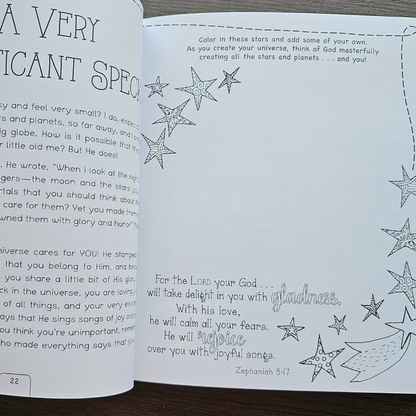 A VERY
FICANT SPEC
ky and feel very small? I do, espec
rs and planets, so far away, and I
ig globe. How is it possible that the
r little old me? But He does!
. He wrote, "When I look at the nigh
gers—the moon and the stars you
rtals that you should think about th
care for them? Yet you made them
wned them with glory and honor"
niverse cares for YOU! He stamped
that you belong to Him, and
you share a little bit of His glory
ck in the universe, you are loving
of all things, and your very
ays that He sings songs of joy over
ou think you're unimportant, remem
ho made everything says that you
22
Color in these stars and add some of your own.
As you create your universe, think of God masterfully
creating all the stars and planets . . . and you!
For the LORD your God . . .
will take delight in you with gladness.
With his love,
he will calm all your fears.
He will rejoice
over you with joyful songs.
Zephaniah 3:17